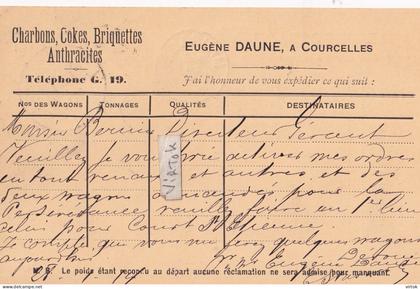 Charbons, Cokes, Briquettes
Anthracites
Téléphone G. 19.
EUGÈNE DAUNE, A COURCELLES
J'ai l'honneur de vous expédier ce qui suit :
Nos DES WAGONS TONNAGES QUALITÉS DESTINATAIRES
Monsieur Directeur Gérant
Veuillez je vous prie activer mes ordres
en tout et autres et des
deux wagons pour la
Persévérance veuillez faire en 1er lieu
celui pour Court St Etienne
Je compte que vous me ferez quelques wagons
aujourd'hui
Eugène Daune
N. B. Le poids étant reconnu au départ aucune réclamation ne sera admise pour manquant.
VIRTOK